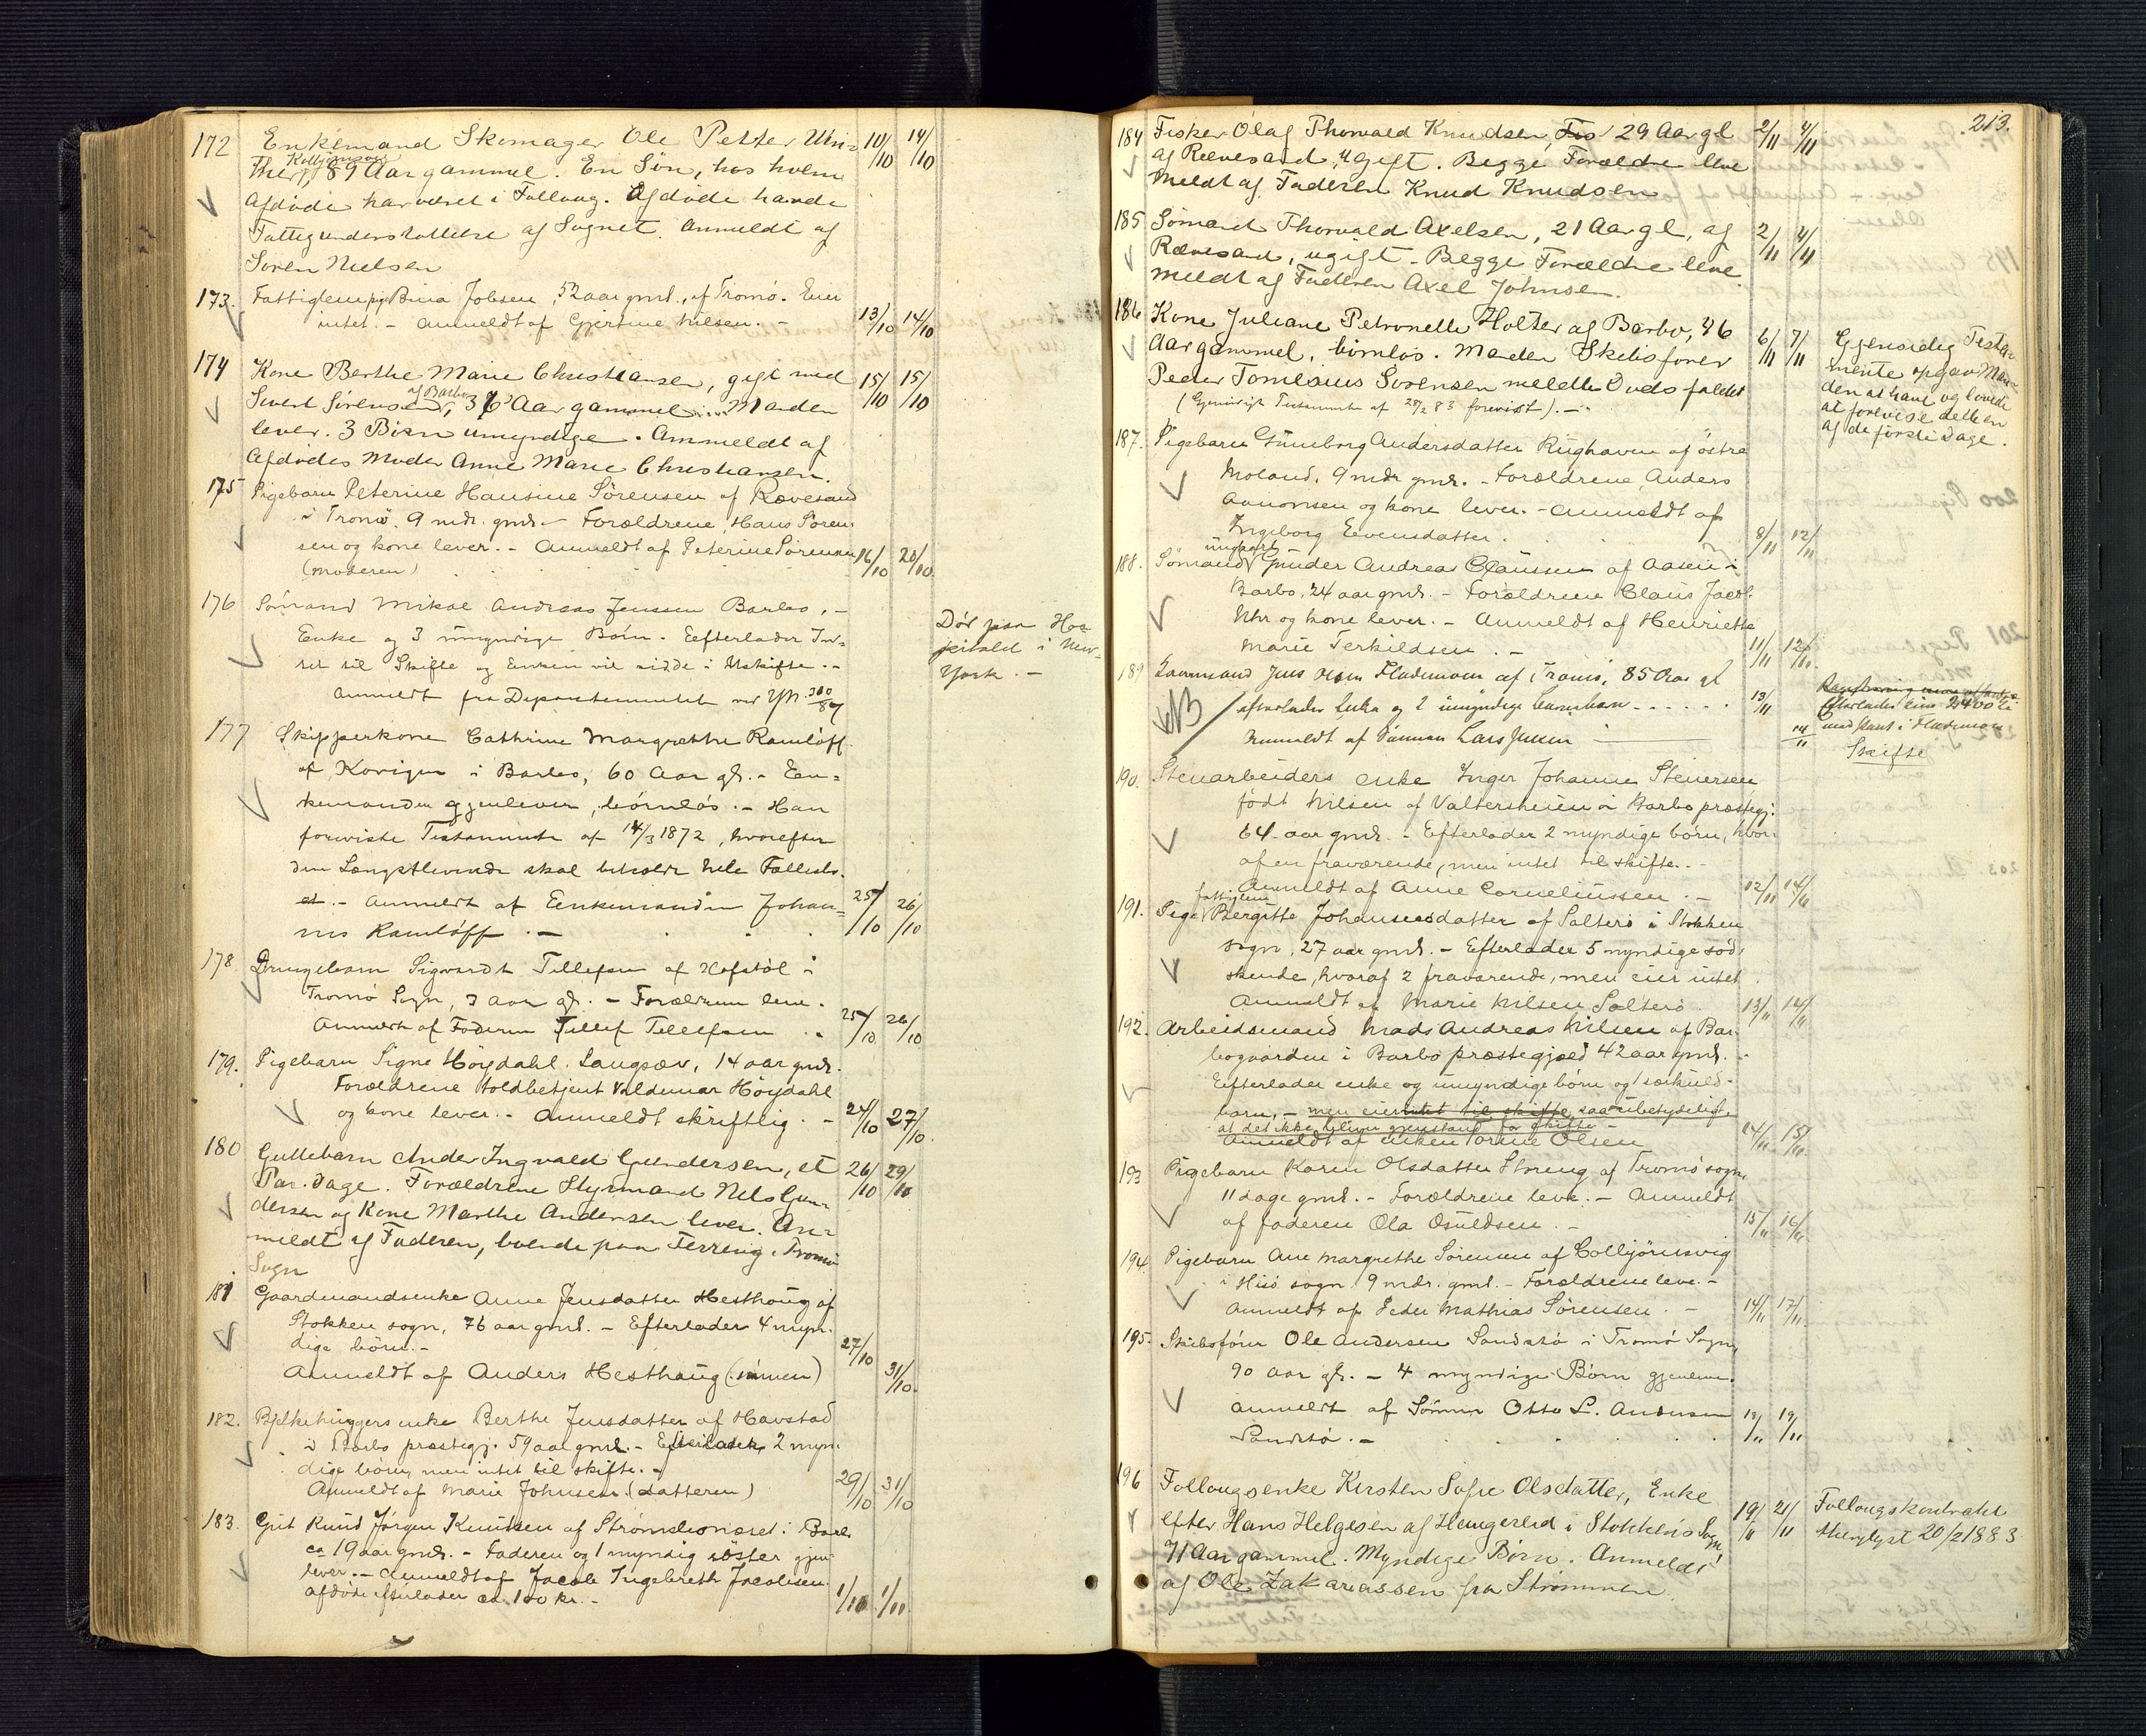 172 Enkemand Skomager Ole Petter Win= 10/10 14/10
Kolbjørnsvig
ther, 89 Aar gammel. En Søn, hos hvem
Afdøde har været i Follaug. Afdøde havde
Fattigunderstøttelse af Sognet. Anmeldt af
Søren Nielsen
173. Fattiglempige Bina Jobsen, 52 aar gml., af Tromø. Eier
intet. - Anmeldt af Gjertine Nilsen. - 13/10 14/10
174 Kone Berthe Marie Christiansen, gift med 15/10 15/10
af Barbo
Sivert Sørensen, 36 Aar gammel. Manden
lever. 3 Børn umyndige. Anmeldt af
Afdødes Moder Anne Marie Christiansen.
175 Pigebarn Peterine Hansine Sørensen af Rævesand
i Tromø. 9 mdr. gml. - Forældrene, Hans Søren-
sen og kone lever. - Anmeldt af Peterine Sørensen 16/10 20/10
(Moderen)
176 Sømand Mikal Andreas Jenssen Barbo. -
Enke og 3 umyndige Børn. Eefterlader In-
tet til Skifte og Enken vil sidde i Uskifte. -
Anmeldt fra Departementet
Død paa Hos-
pitalet i New-
York. -
177 Skipperkone Cathrine Margrethe Ramløff
af Kovigen i Barbo, 60 Aar gl. - Een=
kemanden gjenlever, børnløs. - Han
foreviste Testamente af 14/3 1872, hvorefter
den Længstlevende skal beholde hele Fællesbo-
et. - Anmeldt af Eenkemanden Johan= 25/10 26/10
nes Ramløff. -
178 Drengebarn Sigvardt Tellefsen af Hofstøl i
Tromø Sogn, 3 aar gl. - Forældrene leve.
Anmeldt af Faderen Tellef Tellefsen. 25/10 26/10
179. Pigebarn Signe Höydahl. Langsæv, 14 aar gml.
Forældrene toldbetjent Valdemar Höydahl
og kone lever. - Anmeldt skriftlig. - 24/10 27/10
180 Guttebarn Ander Ingvald Gundersen, et 26/10 29/10
Par Dage. Forældrene Styrmand Nels Gun-
dersen og Kone Marthe Andersen lever. An-
meldt af Faderen, boende paa Færvig, Tromø
Sogn
181 Gaardmandsenke Anne Jensdatter Hesthaug af
Stokken sogn, 76 aar gml. - Efterlader 4 myn-
dige børn. - 27/10
Anmeldt af Anders Hesthaug (sønnen) 31/10.
182. Bjelkehuggers enke Berthe Jensdatter af Havstad
i Barbo præstegj. 59 aar gml. - Efterlader 2 myn-
dige børn, men intet til skifte. -
Anmeldt af Marie Johnsen (datteren) 29/10 31/10
183. Gut Knud Jørgen Knudsen af Strømsbonæset i Barbo
ca 19 aar gml. - Faderen og 1 myndig søster gjen-
lever. - Anmeldt af Jacob Ingebreth Jacobsen.
afdøde efterlader ca. 100 kr. - 1/10 1/11
213.
184 Fisker Olaf Thorvald Knudsen, Fis 29 Aar gl 2/11 4/11
af Rævesand, ugift. Begge Forældre leve
Meldt af Faderen Knud Knudsen
185 Sømand Thorvald Axelsen, 21 Aar gl, af 2/11 4/11
Rævesand, ugift. Begge Forældre leve
Meldt af Faderen Axel Johnsen.
186 Kone Juliane Petronelle Holter af Barbo, 46 6/11 7/11
Aar gammel, børnløs. Manden Skibsfører
Peder Tomesius Sørensen meldte Dødsfaldet
(Gjensidigt Testamente af 28/2 83 forevist). -
Gjensidig Testa-
mente opgav Man-
den at have og lovede
at forevise dette en
af de første Dage.
187. Pigebarn Gunneborg Andersdatter Rughaven af østre
Moland, 9 mdr gml. - Forældrene, Anders
Aanonsen og kone lever. - Anmeldt af
Ingeborg Eevensdatter. 8/11 12/11
188. Sømand ungkarl Gunder Andreas Claussen af Aasen i
Barbo, 24 aar gml. - Forældrene Claus Jacob
Uhr og kone lever. - Anmeldt af Henriette
Marie Terkildsen. - 11/11 12/11.
189 Gaardmand Jens Olsen Flademoen af Tromø, 85 Aar gl
efterlader Enke og 2 umyndige Børnebørn - - - - - 13/11
Anmeldt af Sønnen Lars Jensen 14/11
Efterlader sine 2400 kr
med Pant i Flademoen
Skifte
190. Stenarbeiders enke Inger Johanne Stenersen
født Nilsen af Valtersheien i Barbo præstegj.
64 aar gml. - Efterlader 2 myndige børn, hvor-
af en fraværende, men intet til skifte. -
Anmeldt af Anne Corneliussen. - 12/11 14/11
191. Pige fattiglem Bergitte Johannesdatter af Salterø i Stokken
sogn, 27 aar gml. - Efterlader 5 myndige sød-
skende, hvoraf 2 fraværende, men eier intet
Anmeldt af Marie Nilsen Salterø 13/11 14/11
192. Arbeidsmand Mads Andreas Nilsen af Bar-
bogaarden i Barbo præstegjeld 42 aar gml. -
Efterlader enke og umyndige børn og 1 særkuld-
barn, - men eier intet til skifte, saa ubetydeligt
at det ikke bliver gjenstand for skifte -
Anmeldt af enken Torine Olsen 14/11 15/11
193 Pigebarn Karen Olsdatter Storeng af Tromø sogn,
11 dage gml. - Forældrene leve. - Anmeldt
af faderen Ola Osuldsen. - 15/11 16/11
194. Pigebarn Ane Margrethe Sørensen af Colbjörnsvig
i Hisö sogn, 9 mdr. gml. - Forældrene leve. -
Anmeldt af Peder Mathias Sørensen. - 14/11 17/11
195. Skibsfører Ole Andersen Sandstø i Tromø Sogn,
90 aar gl. - 4 myndige Børn gjenleve.
Anmeldt af Sønnen Otto L. Andersen 18/11 19/11
Sandstø. -
196 Follaugsenke Kirsten Sofie Olsdatter, Enke 19/11 21/11
efter Hans Helgesen af Haugerlid i Stokkens Sogn
71 Aar gammel. Myndige Børn. Anmeldt
af Ole Zakariassen fra Strømmen
Follaugskontrakt
thinglyst 20/2 1883